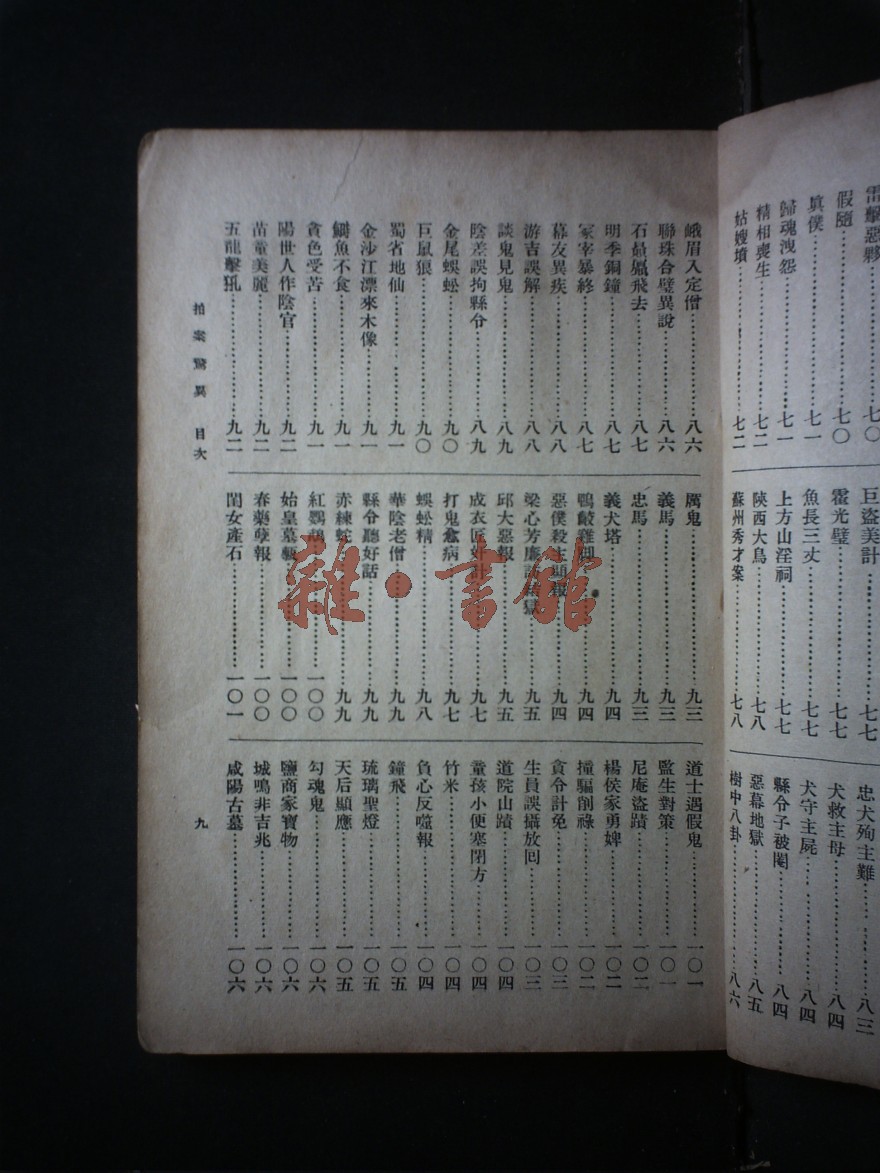 雷擊惡夥……七〇
假隨……七〇
眞僕……七一
歸魂洩怨……七一
精相喪生……七二
姑嫂墳……七二
巨盜美計……七七
霍光璧……七七
魚長三丈……七七
上方山淫祠……七七
陝西大鳥……七八
蘇州秀才案……七八
忠犬殉主難……八三
犬救主母……八四
犬守主屍……八四
縣令子被閹……八四
惡幕地獄……八五
樹中八卦……八六
峨眉入定僧……八六
聯珠合璧異說……八六
石贔屭飛去……八七
明季銅鐘……八七
冢宰暴終……八七
幕友異疾……八八
游吉誤解……八八
談鬼見鬼……八九
陰差誤拘縣令……八九
金尾蜈蚣……九〇
巨鼠狼……九〇
蜀省地仙……九一
金沙江漂來木像……九一
鯛魚不食……九一
貪色受苦……九一
陽世人作陰官……九二
苗童美麗……九二
五龍擊犼……九二
厲鬼……九三
義馬……九三
忠馬……九三
義犬塔……九四
鴨鮫雞卵……九四
惡僕殺主顯報……九四
梁心芳庵訟冥獄……九五
邱大惡報……九五
成衣匠奸計……九七
打鬼愈病……九七
蜈蚣精……九八
華陰老僧……九九
縣令聽好話……九九
赤練蛇……九九
紅鸚鵡……一〇〇
始皇墓……一〇〇
春藥孽報……一〇〇
閨女產石……一〇一
道士遇假鬼……一〇一
監生對策……一〇一
尼庵盜蹟……一〇二
楊侯家勇婢……一〇二
撞騙削祿……一〇二
貪令計免……一〇三
生員誤攝放回……一〇三
道院山蹟……一〇四
童孩小便塞閉方……一〇四
竹米……一〇四
負心反噬報……一〇四
鐘飛……一〇五
琉璃聖燈……一〇五
天后顯應……一〇五
勾魂鬼……一〇六
鹽商家寶物……一〇六
城鳴非吉兆……一〇六
咸陽古墓……一〇六
拍案驚異 目次
九
雜·書館